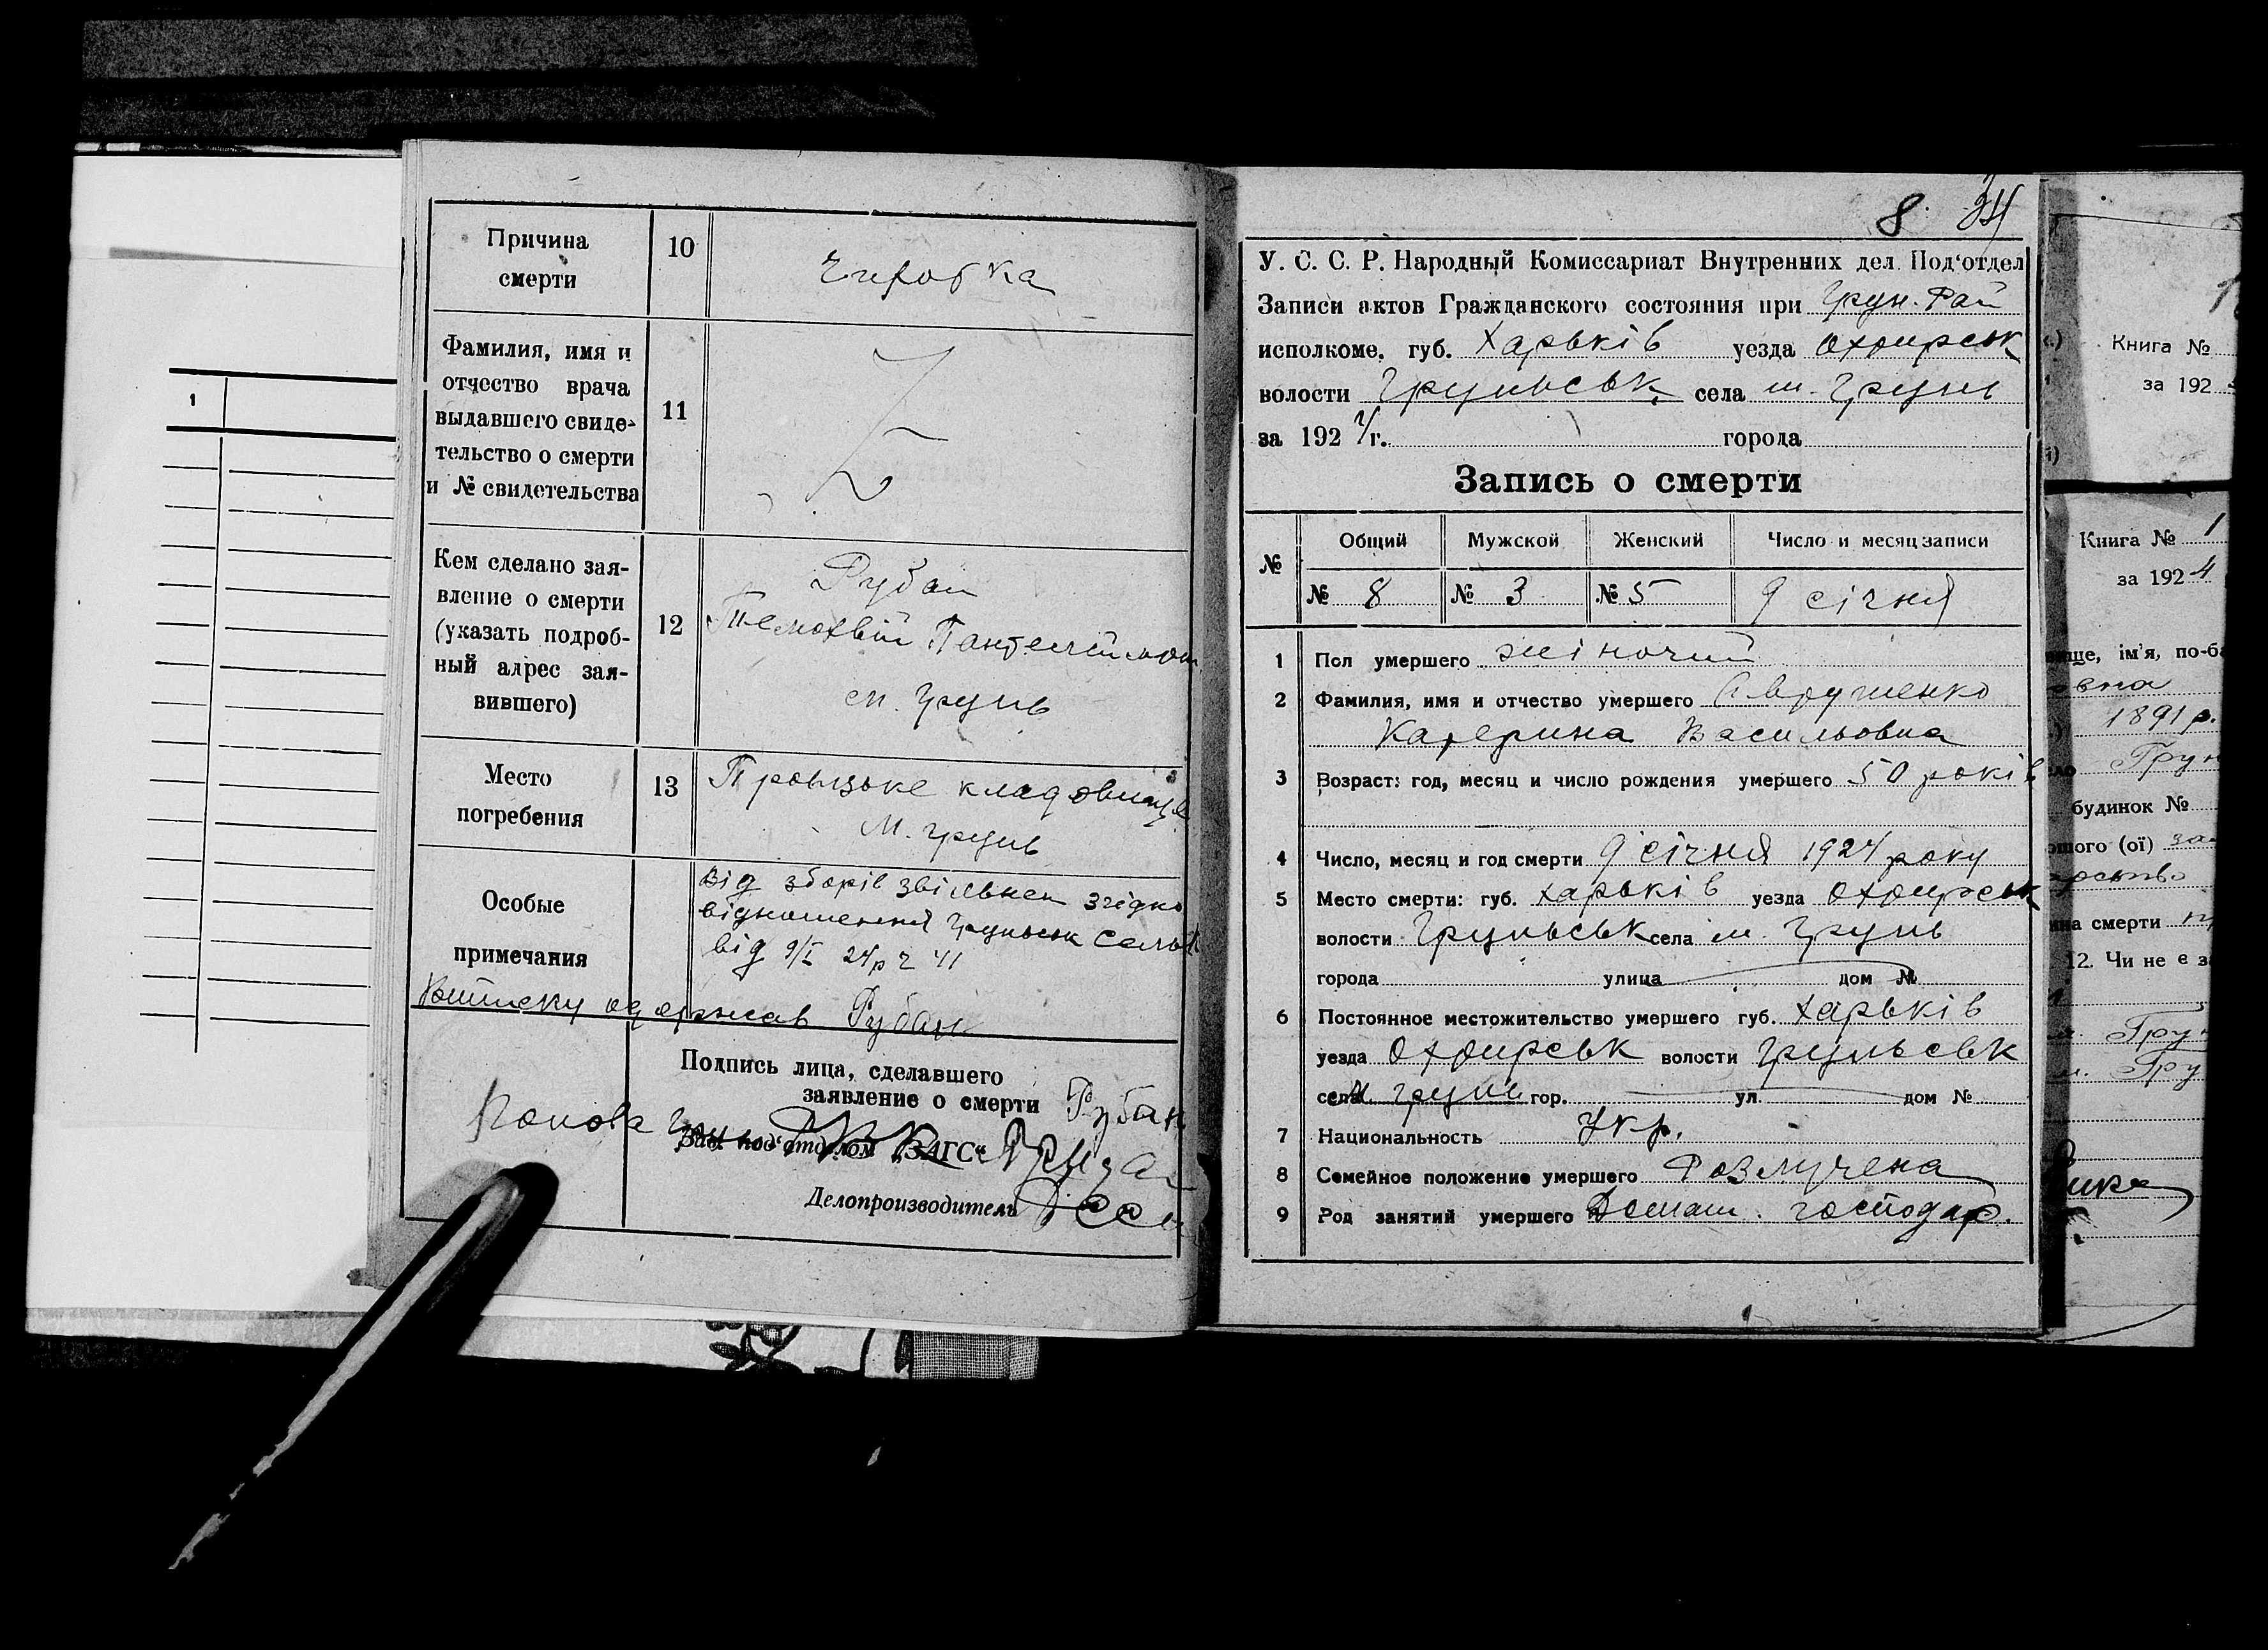 1
Причина
смерти
10
Чихотка
Фамилия, имя и
отчество врача
выдавшего свиде-
тельство о смерти
и № свидетельства
11
Кем сделано зая-
вление о смерти
(указать подроб-
ный адрес зая-
вившего)
12
Рубан
Пантелеймон
м. Грунь
Место
погребения
13
кладовище
м. Грунь
Особые
примечания
Від зборів звільнен згідно
відношення Груньськ
від 9/I 24р ч 41
Виписку одержав Рубан
Подпись лица, сделавшего
заявление о смерти Рубан
Зав. под'отделом „ЗАГС“
Делопроизводитель
8 24
У. С. С. Р. Народный Комиссариат Внутренних дел. Под'отдел
Записи актов Гражданского состояния при Грун. Рай
исполкоме. губ. Харьків уезда Охтирськ
волости Груньськ села м. Грунь
за 1924 г. города
Запись о смерти
№ Общий Мужской Женский Число и месяц записи
№ 8 № 3 № 5 9 січня
1 Пол умершего жіночий
2 Фамилия, имя и отчество умершего
Катерина Васильовна
3 Возраст: год, месяц и число рождения умершего 50 років
4 Число, месяц и год смерти 9 січня 1924 року
5 Место смерти: губ. Харьків уезда Охтирськ
волости Груньськ села м. Грунь
города улица дом №
6 Постоянное местожительство умершего губ. Харьків
уезда Охтирськ волости Груньськ
села м. Грунь гор. ул. дом №
7 Национальность Укр.
8 Семейное положение умершего Розлучена
9 Род занятий умершего Домаш. господар.
Книга №
за 192
Книга № 1
за 1924
ім'я, по-ба
овна
1891 р.
Грун
будинок №
ого (ої)
смерти
12. Чи не є з
Грун
Гру